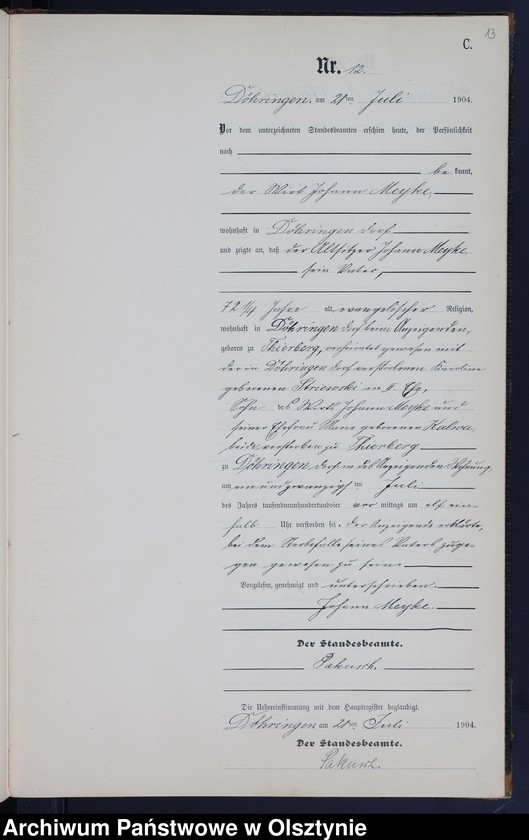 13
C.
Nr. 12.
Döhringen, am 21ten Juli 1904.
Vor dem unterzeichneten Standesbeamten erschien heute, der Persönlichkeit
nach
be kannt,
der Wirt Johann Meyke,
wohnhaft in Döhringen dorf
und zeigte an, daß der Altsitzer Johann Meyke,
sein Vater,
72 1/4 Jahre alt, evangelischer Religion,
wohnhaft in Döhringen dorf beim Anzeigenden,
geboren zu Thierberg, verheiratet gewesen mit
der in Döhringen dorf verstorbenen Karoline
geborenen Striewski in II. Ehe,
Sohn des Wirts Johann Meyke und
seiner Ehefrau Marie geborenen Kalwa,
beide verstorben zu Thierberg
zu Döhringen, dorf in des Anzeigenden Wohnung,
am einundzwanzigsten Juli
des Jahres tausendneunhundertundvier vor mittags um elf ein
halb Uhr verstorben sei. Der Anzeigende erklärte,
bei dem Sterbefalle seines Vaters zuge-
gen gewesen zu sein.
Vorgelesen, genehmigt und unterschrieben.
Johann Meyke.
Der Standesbeamte.
Pakusch.
Die Uebereinstimmung mit dem Hauptregister beglaubigt.
Döhringen am 21ten Juli 1904.
Der Standesbeamte.
Pakusch.
Archiwum Państwowe w Olsztynie